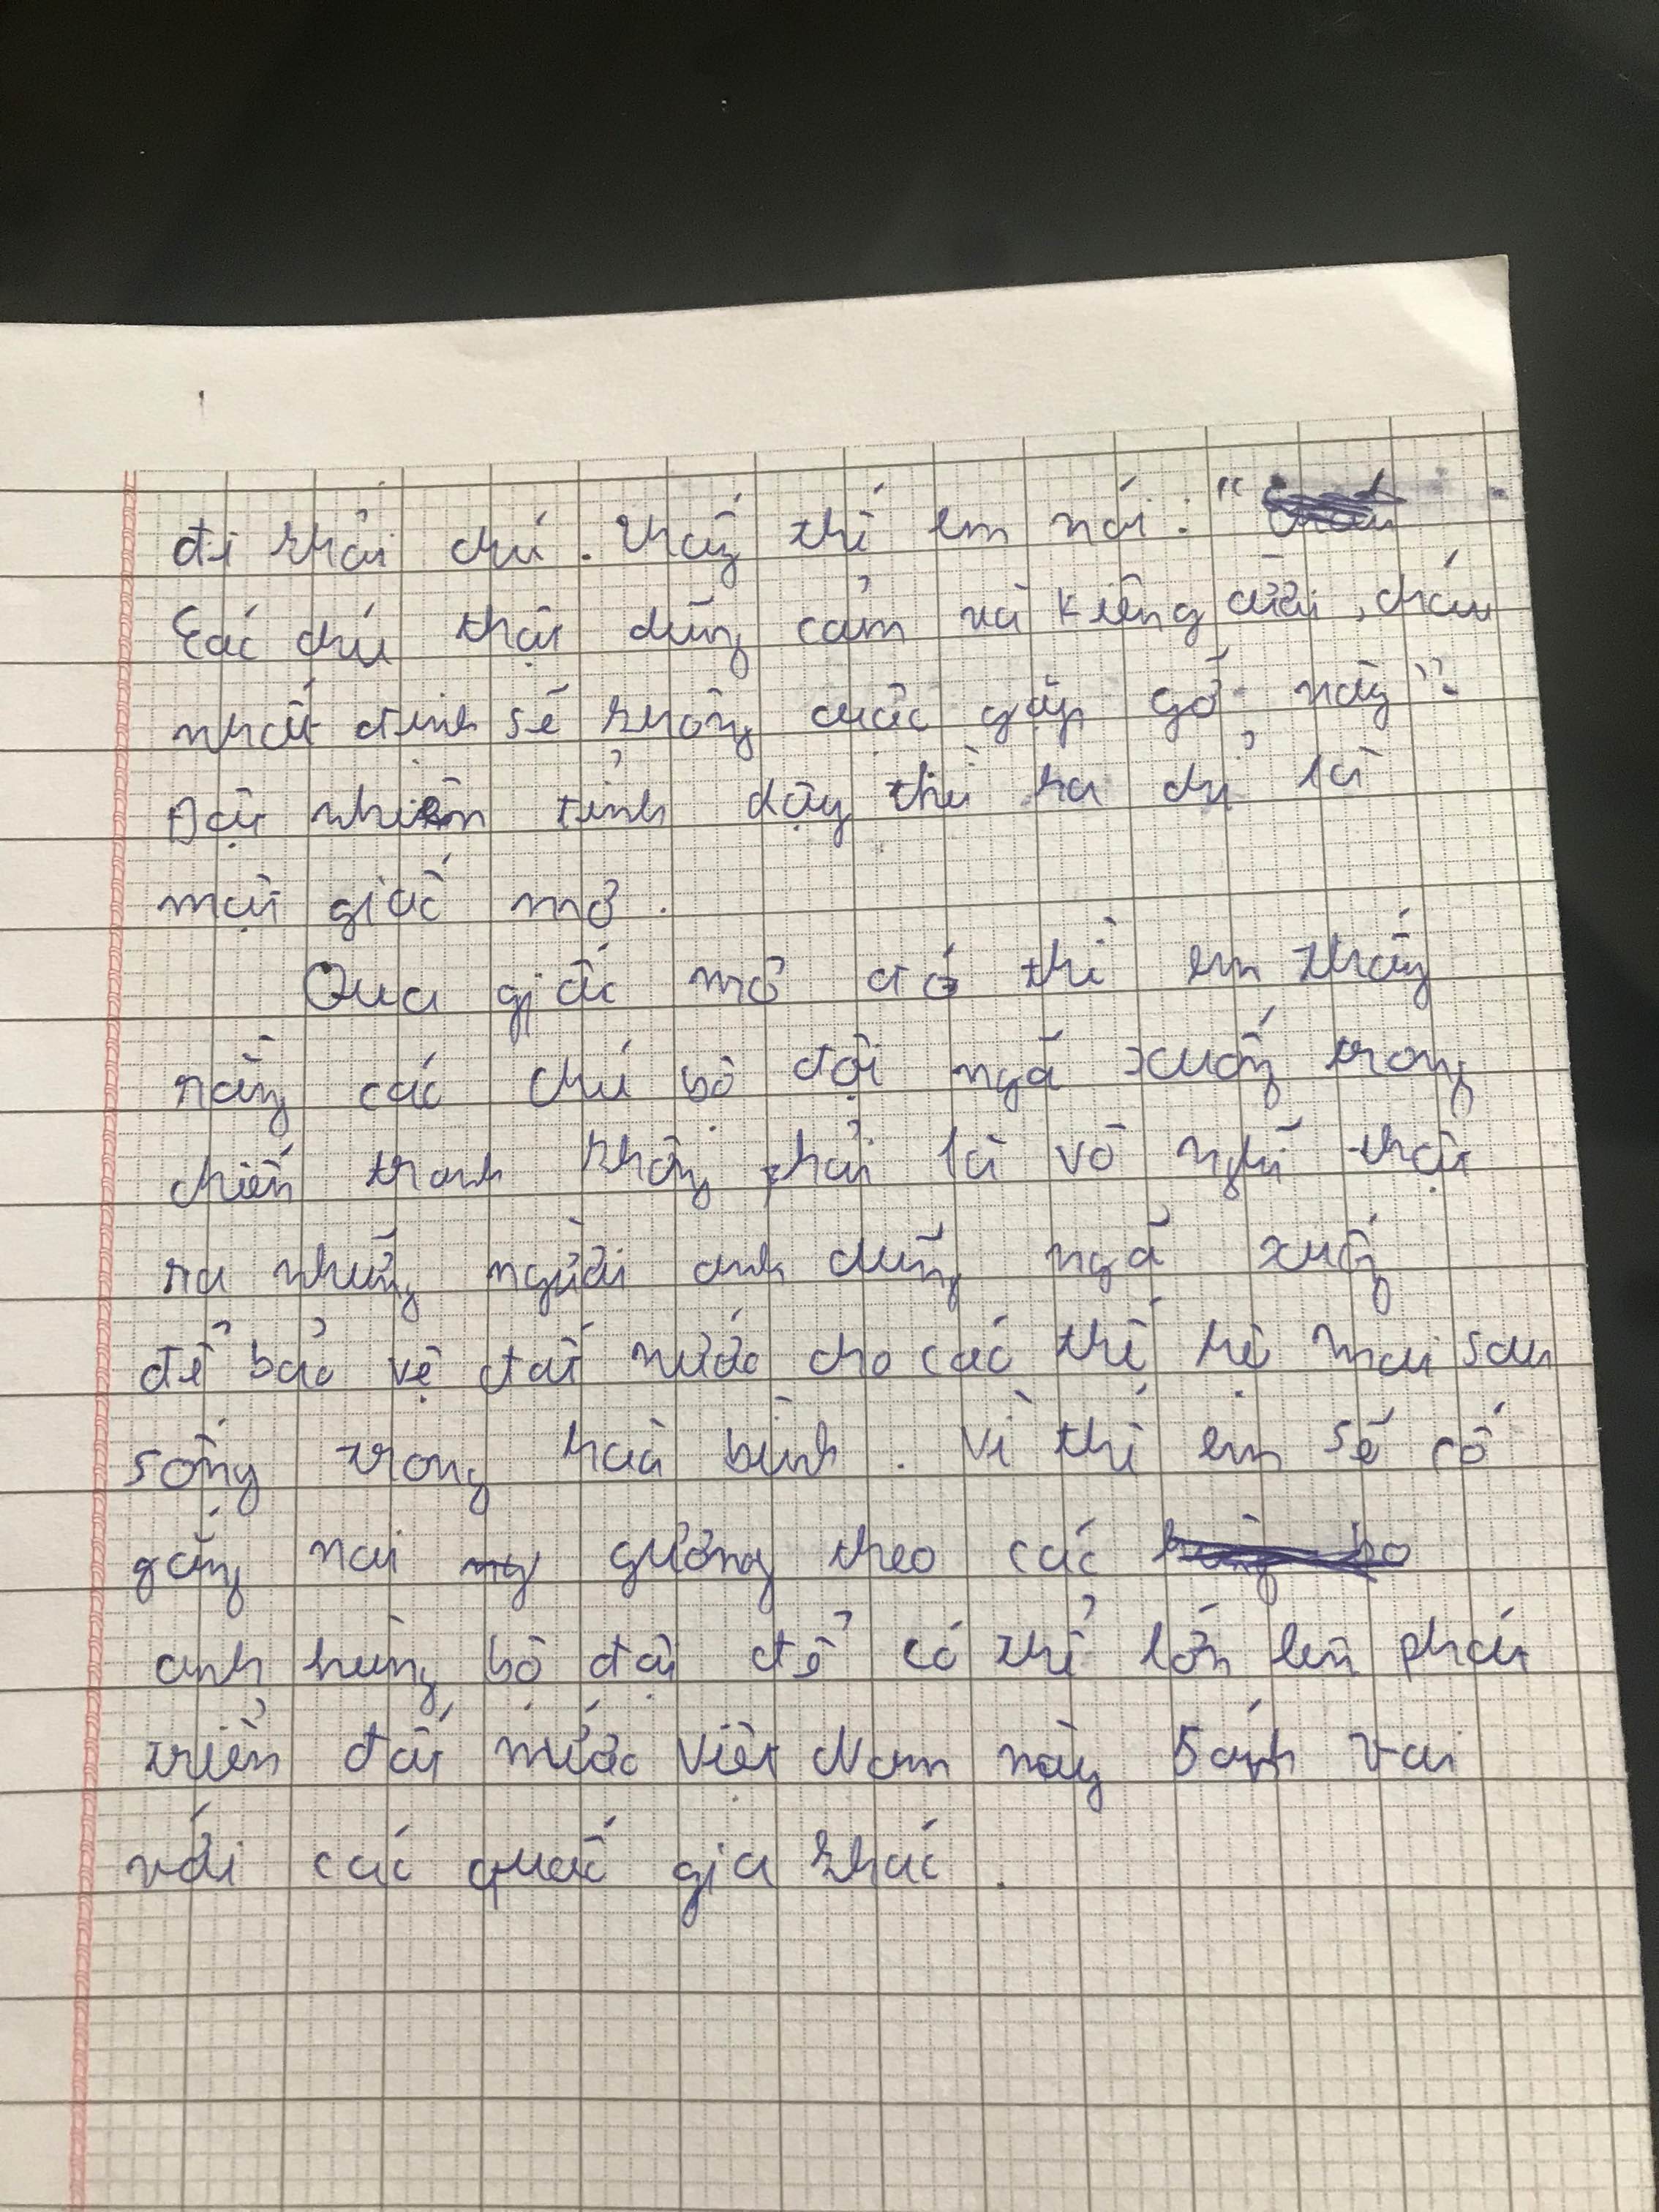 đi thôi chú. Thấy thế em nói: "
Các chú thật dũng cảm và kiêng cười, cháu
nhất định sẽ không cuộc gặp gỡ này"
Đột nhiên tỉnh dậy thì ra chỉ là
một giấc mơ.
Qua giấc mơ đó thì em thấy
rằng các chú bộ đội ngã xuống trong
chiến tranh không phải là vô nghĩ thật
ra những người anh dũng ngã xuống
để bảo vệ đất nước cho các thế hệ mai sau
sống trong hoà bình. Vì thế em sẽ cố
gắng noi gương theo các
anh hùng bộ đội để có thể lớn lên phát
triển đất nước Việt Nam này sánh vai
với các quốc gia khác.